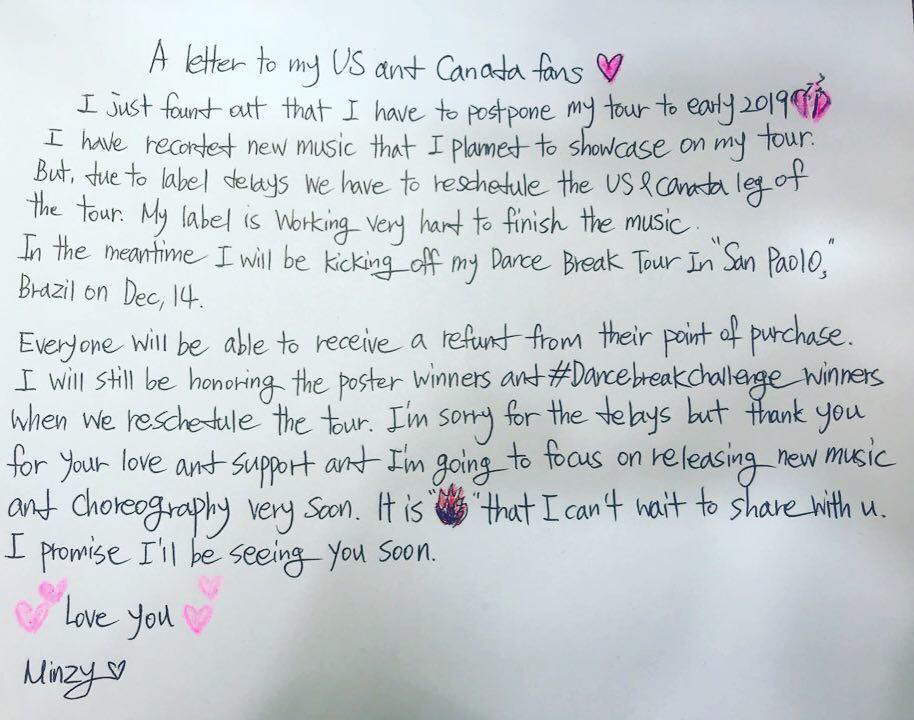 A letter to my US and Canada fans
I just found out that I have to postpone my tour to early 2019
I have recorded new music that I planned to showcase on my tour.
But, due to label delays we have to reschedule the US & Canada leg of
the tour. My label is working very hard to finish the music.
In the meantime I will be kicking off my Dance Break Tour In "San Paolo,"
Brazil on Dec, 14.
Everyone will be able to receive a refund from their point of purchase.
I will still be honoring the poster winners and #Dancebreakchallenge winners
when we reschedule the tour. I'm sorry for the delays but thank you
for your love and support and I'm going to focus on releasing new music
and choreography very soon. It is "🔥" that I can't wait to share with u.
I promise I'll be seeing you soon.
Love you
Minzy